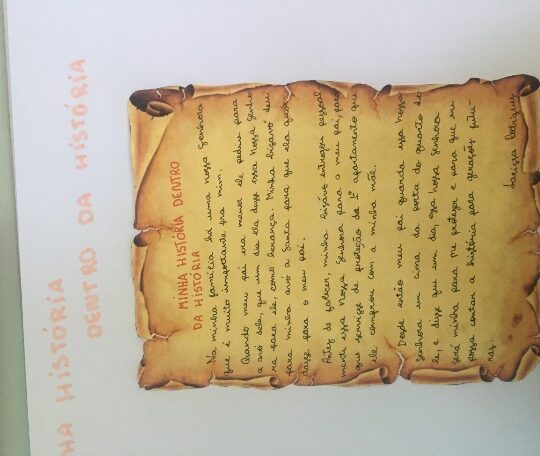 HA HISTÓRIA
DENTRO DA HISTÓRIA
MINHA HISTÓRIA DENTRO
DA HISTÓRIA
Na minha família há uma nossa senhora
que é muito importante pra mim.
Quando meu pai era menor ele pediu para
a avó dele, que um dia ela desse essa Nossa Senho
ra para ele, como herança. Minha bisavó deu
para minha avó a Santa para que ela guar
dasse para o meu pai.
Antes de falecer, minha bisavó entregou pessoal
mente essa Nossa Senhora para o meu pai, para
que servisse de proteção do 1º apartamento que
ele comprou com a minha mãe.
Desde então meu pai guarda essa nossa
Senhora em cima da porta do quarto de
le, e disse que um dia, essa Nossa Senhora
será minha para me proteger e para que eu
possa contar a história para gerações futu-
ras.
Larissa Rodrigues